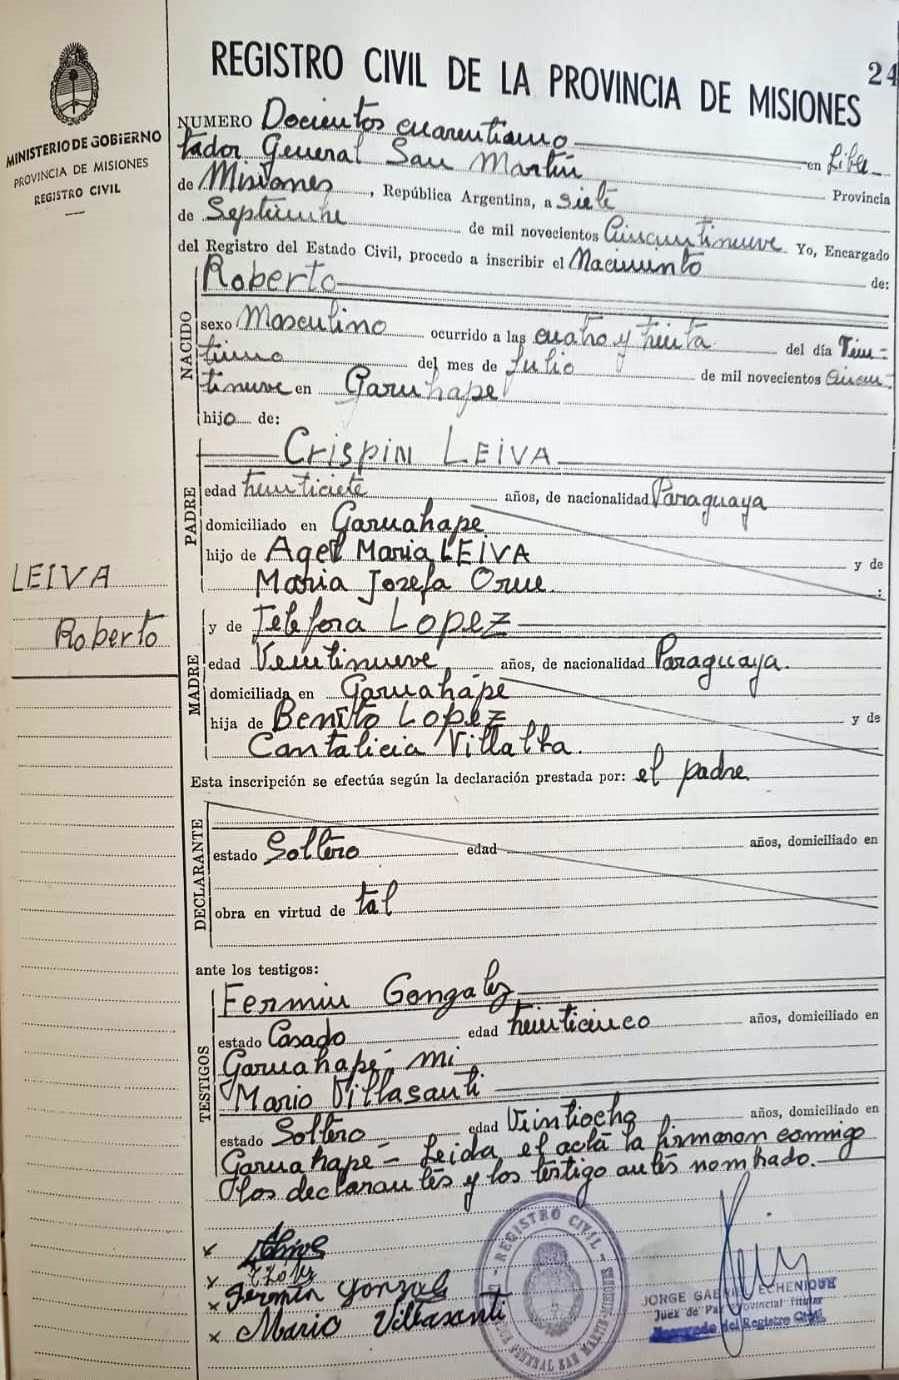 REGISTRO CIVIL DE LA PROVINCIA DE MISIONES
24
MINISTERIO DE GOBIERNO
PROVINCIA DE MISIONES
REGISTRO CIVIL
NUMERO Docientos cuarentiuno en Libe_
tador General San Martín Provincia
de Misiones, República Argentina, a siete
de Septiembre de mil novecientos Cincuentinueve Yo, Encargado
del Registro del Estado Civil, procedo a inscribir el Nacimiento de:
NACIDO
Roberto
sexo Masculino ocurrido a las cuatro y treinta del día Vein=
tiuno del mes de Julio de mil novecientos Cincuen=
tinueve en Garuhape
hijo de:
PADRE
Crispin LEIVA
edad treinticiete años, de nacionalidad Paraguaya
domiciliado en Garuahape
hijo de Agel Maria LEIVA y de
Maria Josefa Orue. :
LEIVA
Roberto
MADRE
y de Telefora Lopez
edad Veintinueve años, de nacionalidad Paraguaya.
domiciliada en Garuahape
hija de Benito Lopez y de
Cantalicia Villalta.
Esta inscripción se efectúa según la declaración prestada por: el padre
DECLARANTE
estado Soltero edad años, domiciliado en
obra en virtud de tal
ante los testigos:
TESTIGOS
Fermin Gongalez
estado Casado edad treinticinco años, domiciliado en
Garuahapé - Mi
Mario Villasanti
estado Soltero edad Veintiocho años, domiciliado en
Garuahapé - Leida el acta la firmaron conmigo
los declarantes y los testigo antes nombrado.
x
x
x Fermin Gonzalez
x Mario Villasanti
REGISTRO CIVIL
GENERAL SAN MARTIN
JORGE GABRIEL ECHENIQUE
Juez de Paz Provincial Titular
Encargado del Registro Civil